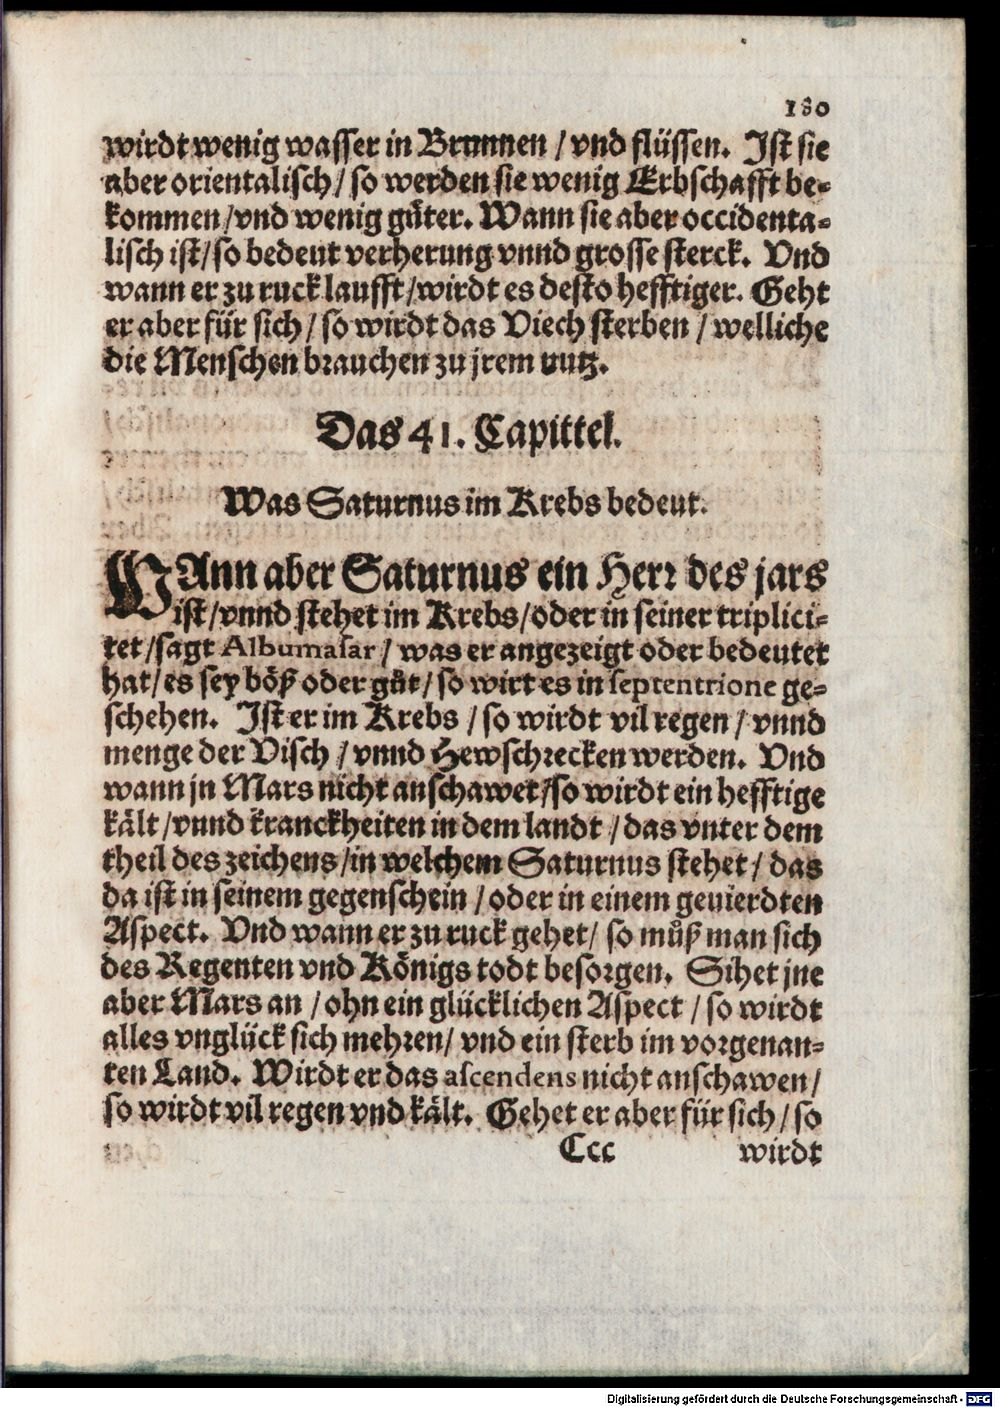 180
wirdt wenig wasser in Brunnen / vnd flüssen. Ist sie
aber orientalisch / so werden sie wenig Erbschafft be-
kommen / vnd wenig gůter. Wann sie aber occidenta-
lisch ist / so bedeut verherung vnnd grosse sterck. Vnd
wann er zu ruck laufft / wirdt es desto hefftiger. Geht
er aber für sich / so wirdt das Viech sterben / welliche
die Menschen brauchen zu jrem nutz.
Das 41. Capittel.
Was Saturnus im Krebs bedeut.
WAnn aber Saturnus ein Herr des jars
ist / vnnd stehet im Krebs / oder in seiner triplici-
tet / sagt Albumasar / was er angezeigt oder bedeutet
hat / es sey böß oder gůt / so wirt es in septentrione ge-
schehen. Ist er im Krebs / so wirdt vil regen / vnnd
menge der Visch / vnnd Hewschrecken werden. Vnd
wann jn Mars nicht anschawet / so wirdt ein hefftige
kält / vnnd kranckheiten in dem landt / das vnter dem
theil des zeichens / in welchem Saturnus stehet / das
da ist in seinem gegenschein / oder in einem geuierdten
Aspect. Vnd wann er zu ruck gehet / so můß man sich
des Regenten vnd Königs todt besorgen. Sihet jne
aber Mars an / ohn ein glücklichen Aspect / so wirdt
alles vnglück sich mehren / vnd ein sterb im vorgenan-
ten Land. Wirdt er das ascendens nicht anschawen /
so wirdt vil regen vnd kält. Gehet er aber für sich / so
Ccc wirdt
Digitalisierung gefördert durch die Deutsche Forschungsgemeinschaft - DFG